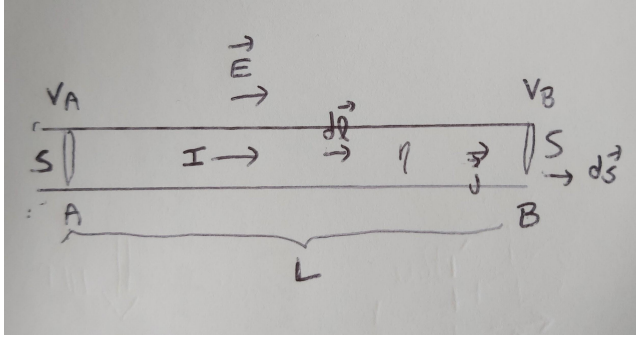 E
VA VB
dl
S I η J S ds
A B
L